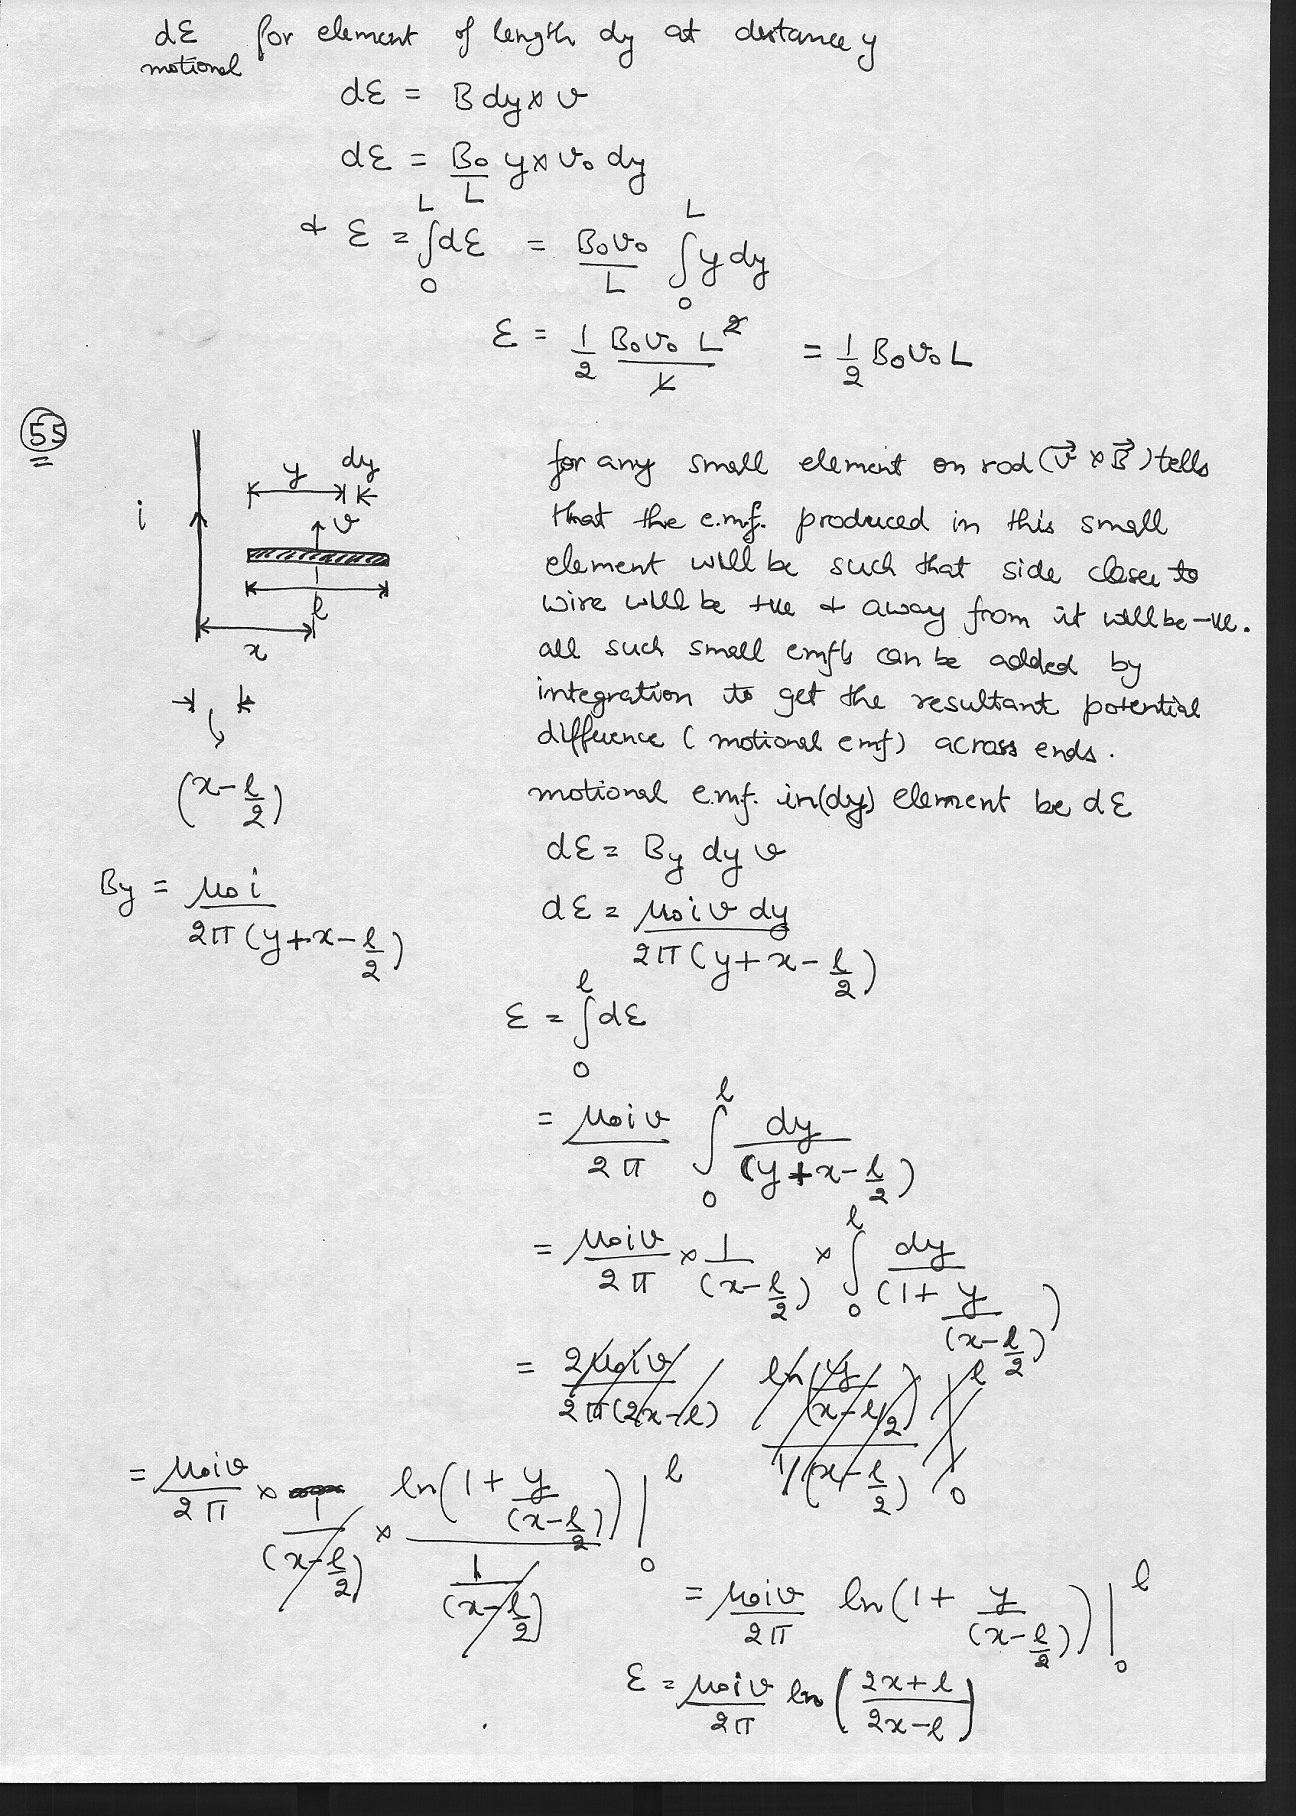 dε for element of length dy at distance y
motional
dε = B dy × v
dε = B₀/L y × v₀ dy
& ε = ∫₀ᴸ dε = B₀v₀/L ∫₀ᴸ y dy
ε = 1/2 B₀v₀ L²/L = 1/2 B₀v₀L
55
i
y
dy
v
l
x
(x - l/2)
By = μ₀i/2π(y+x-l/2)
for any small element on rod (v⃗ × B⃗) tells
that the e.m.f. produced in this small
element will be such that side closer to
wire will be +ve & away from it will be -ve.
all such small emfs can be added by
integration to get the resultant potential
difference (motional emf) across ends.
motional e.m.f. in (dy) element be dε
dε = By dy v
dε = μ₀iv dy/2π(y+x-l/2)
ε = ∫₀ˡ dε
= μ₀iv/2π ∫₀ˡ dy/(y+x-l/2)
= μ₀iv/2π × 1/(x-l/2) × ∫₀ˡ dy/(1+y/(x-l/2))
= 2μ₀iv/2π(2x-l) ln(y/(x-l/2))/1/(x-l/2) |₀ˡ
= μ₀iv/2π × 1/(x-l/2) × ln(1+y/(x-l/2))/1/(x-l/2) |₀ˡ
= μ₀iv/2π ln(1+y/(x-l/2)) |₀ˡ
ε = μ₀iv/2π ln(2x+l/2x-l)